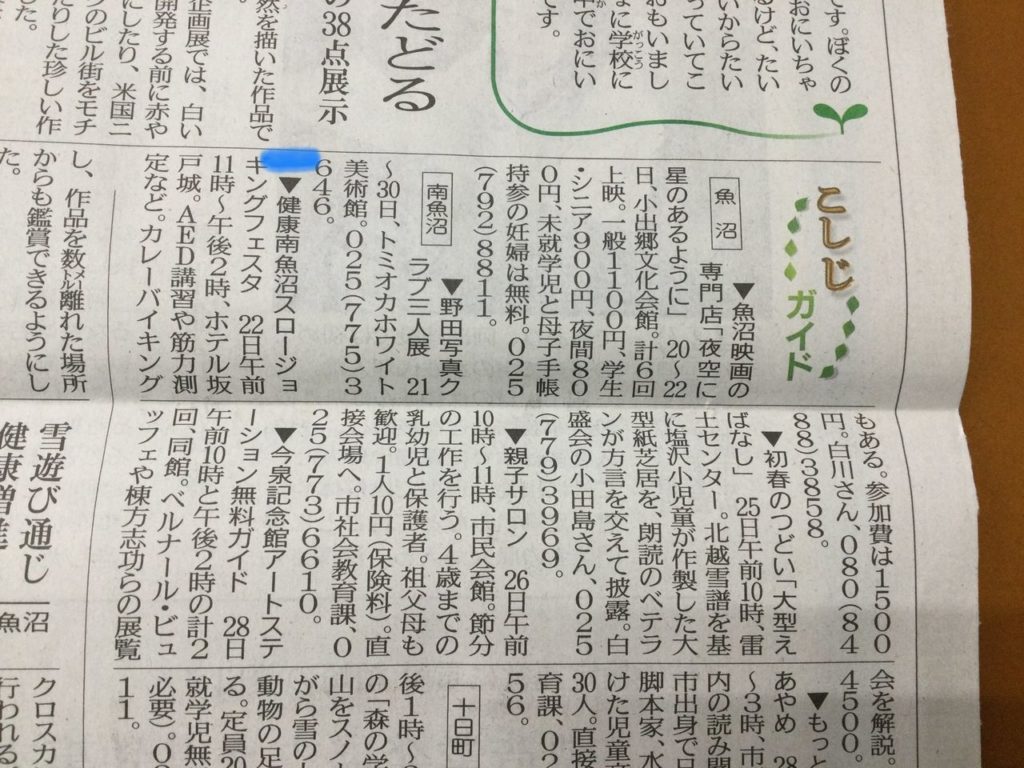 です。ぼくの
おにいちゃ
るけど、たい
いからたい
っていてこ
おもいまし
なに学校に
がっこう
年でおにい
です。
たどる
の38点展示
然を描いた作品で
企画展では、白い
開発する前に赤や
にしたり、米国ニ
のビル街をモチ
たりした珍しい作
した。
こしじ
ガイド
魚沼
▼魚沼映画の
専門店「夜空に
星のあるように」 20〜22
日、小出郷文化会館。計6回
上映。一般1100円、学生
・シニア900円、夜間80
0円、未就学児と母子手帳
持参の妊婦は無料。025
(792)8811。
南魚沼
▼野田写真ク
ラブ三人展 21
〜30日、トミオカホワイト
美術館。025(775)3
646。
▼健康南魚沼スロージョ
キングフェスタ 22日午前
11時〜午後2時、ホテル坂
戸城。AED講習や筋力測
定など。カレーバイキング
もある。参加費は1500
円。白川さん、080(84
88)3858。
▼初春のつどい「大型え
ばなし」 25日午前10時、雷
土センター。北越雪譜を基
に塩沢小児童が作製した大
型紙芝居を、朗読のベテラ
ンが方言を交えて披露。白
盛会の小田島さん、025
(779)3969。
▼親子サロン 26日午前
10時〜11時、市民会館。節分
の工作を行う。4歳までの
乳幼児と保護者。祖父母も
歓迎。1人10円(保険料)。直
接会場へ。市社会教育課、0
25(773)6610。
▼今泉記念館アートステ
ーション無料ガイド 28日
午前10時と午後2時の計2
回、同館。ベルナール・ビュ
ッフェや棟方志功らの展覧
会を解説。
4500。
▼もっと
あやめ 28
〜3時、市
内の読み聞
市出身で
脚本家、水
けた児童
30人。直接
育課、02
56。
十日町
後1時〜
の「森の学
山をスノ
がら雪の
動物の足
る。定員20
就学児無
必要)。0
11。
し、作品を数メートル離れた場所
からも鑑賞できるようにし
た。
雪遊び通じ
健康増進
魚沼
クロスカ
行われる